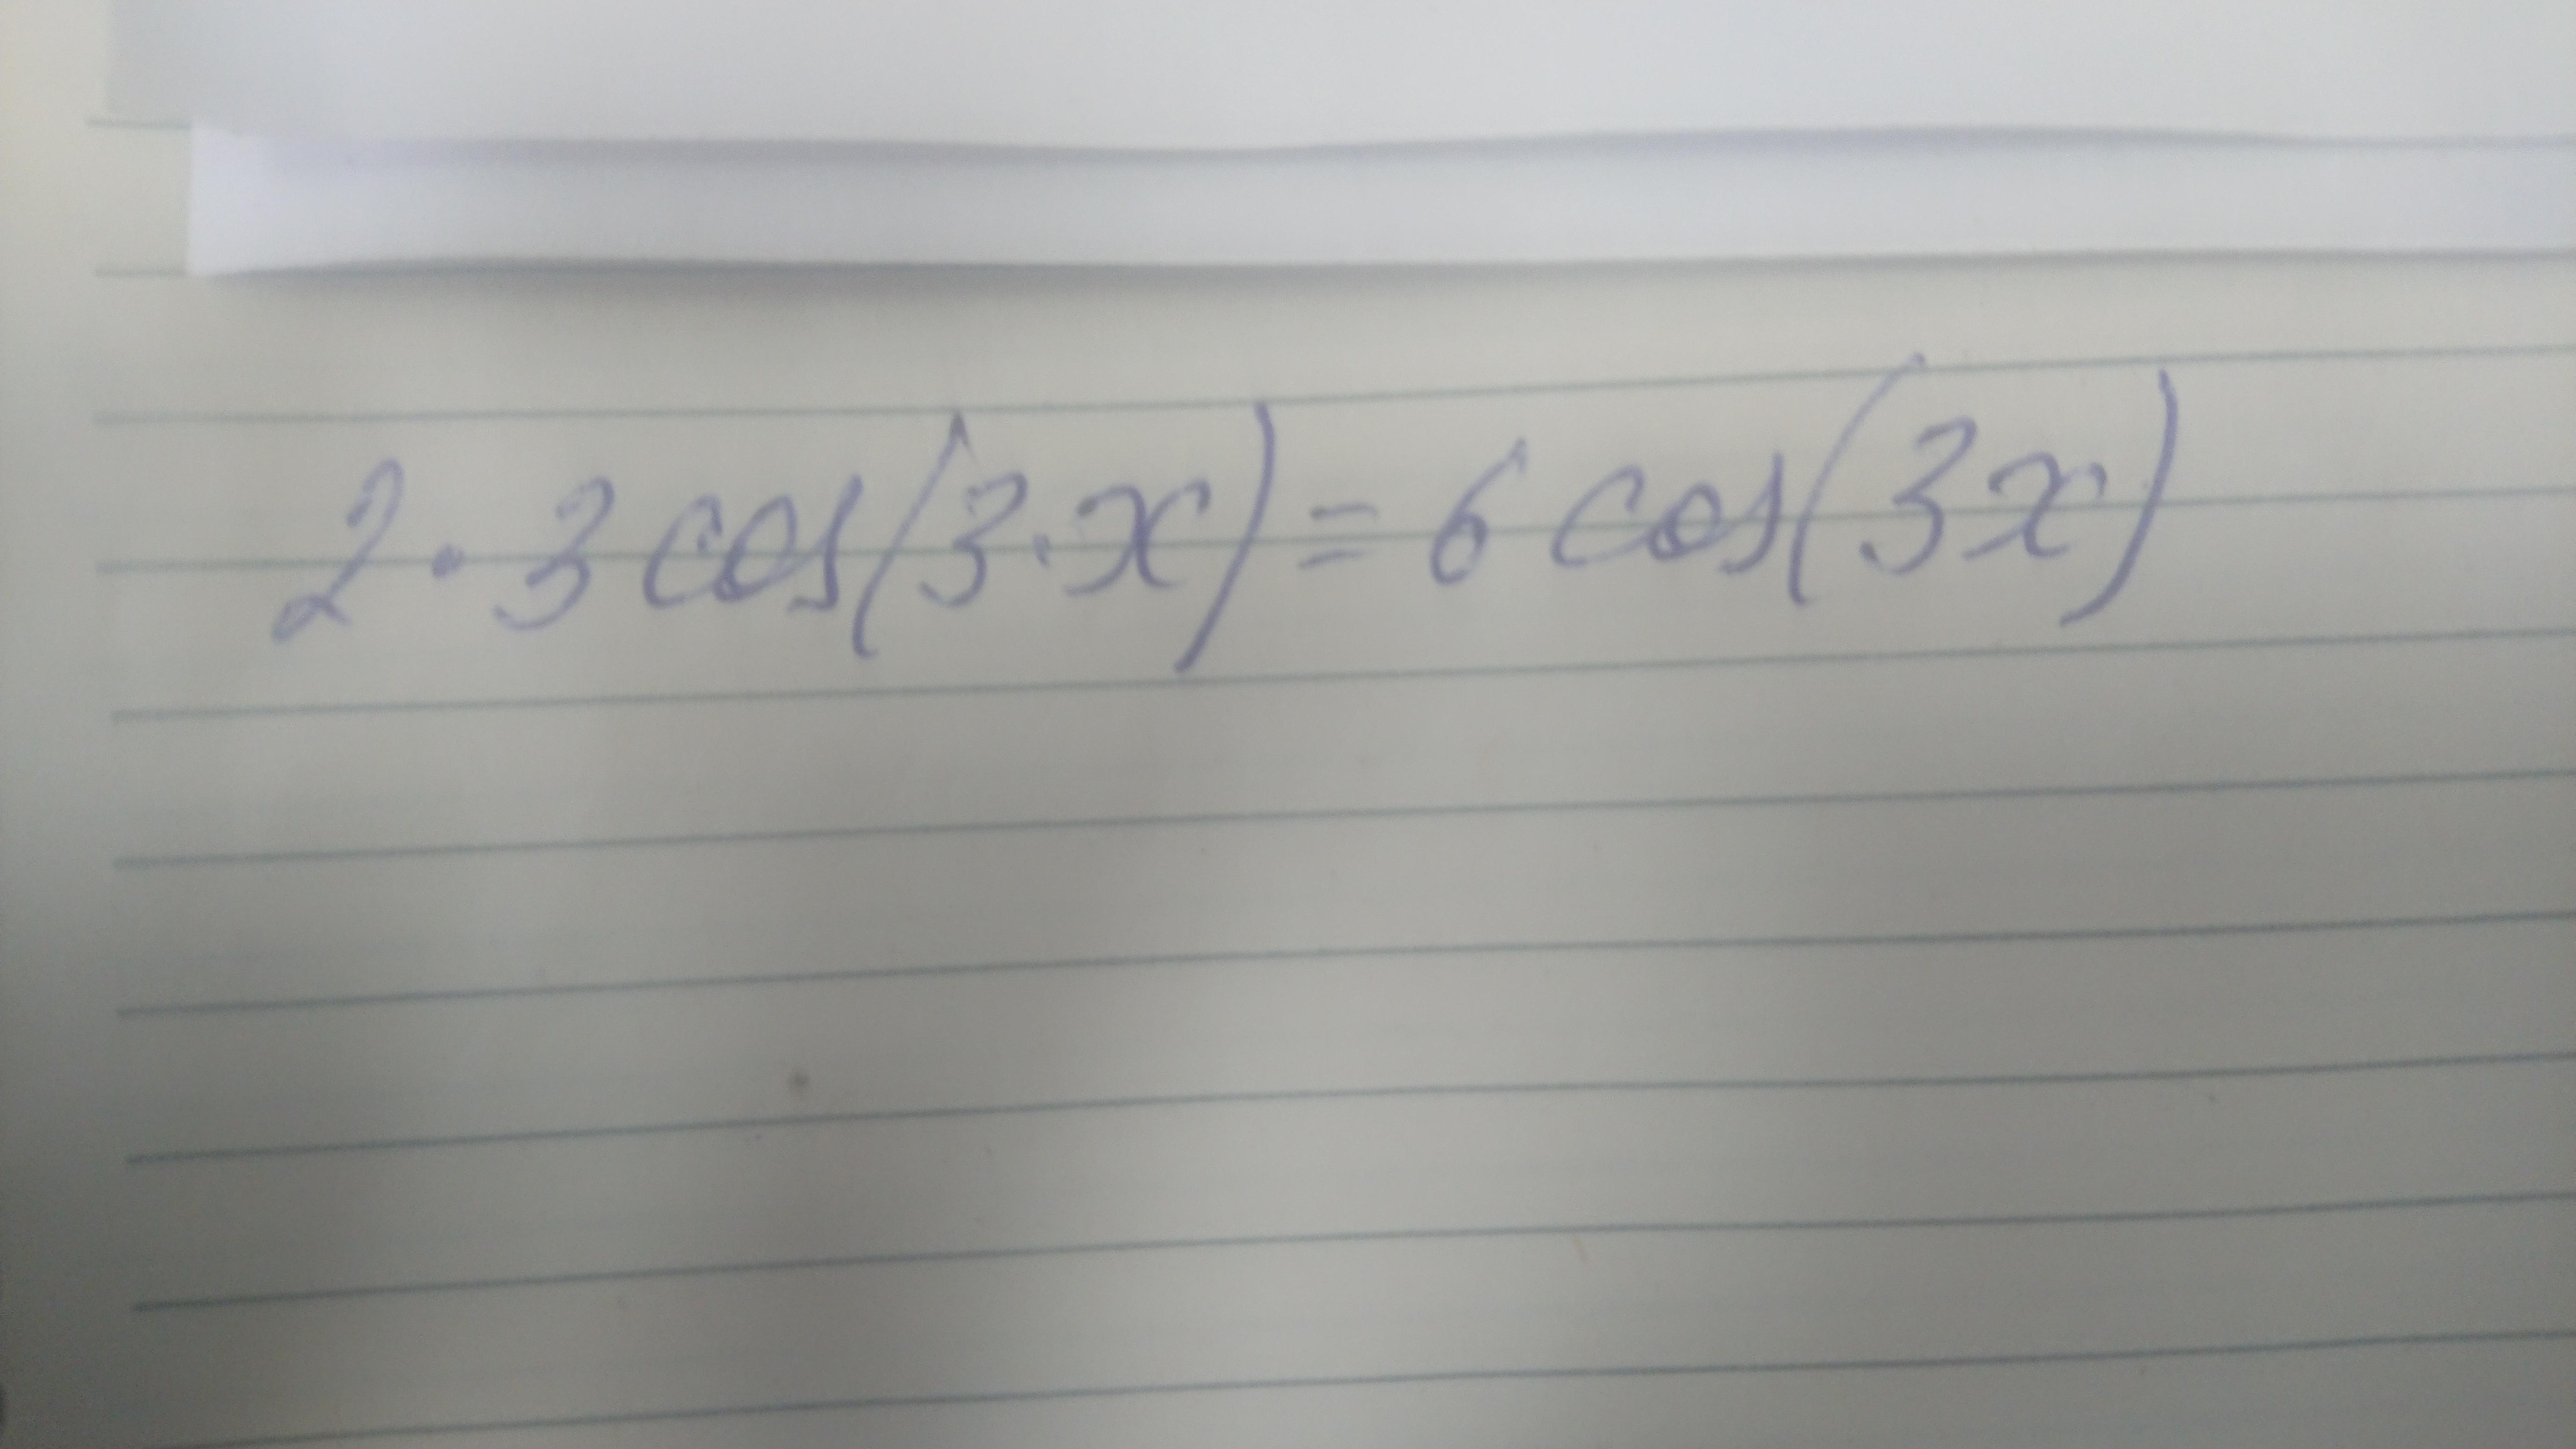 2 · 3 cos(3 · x) = 6 cos(3x)